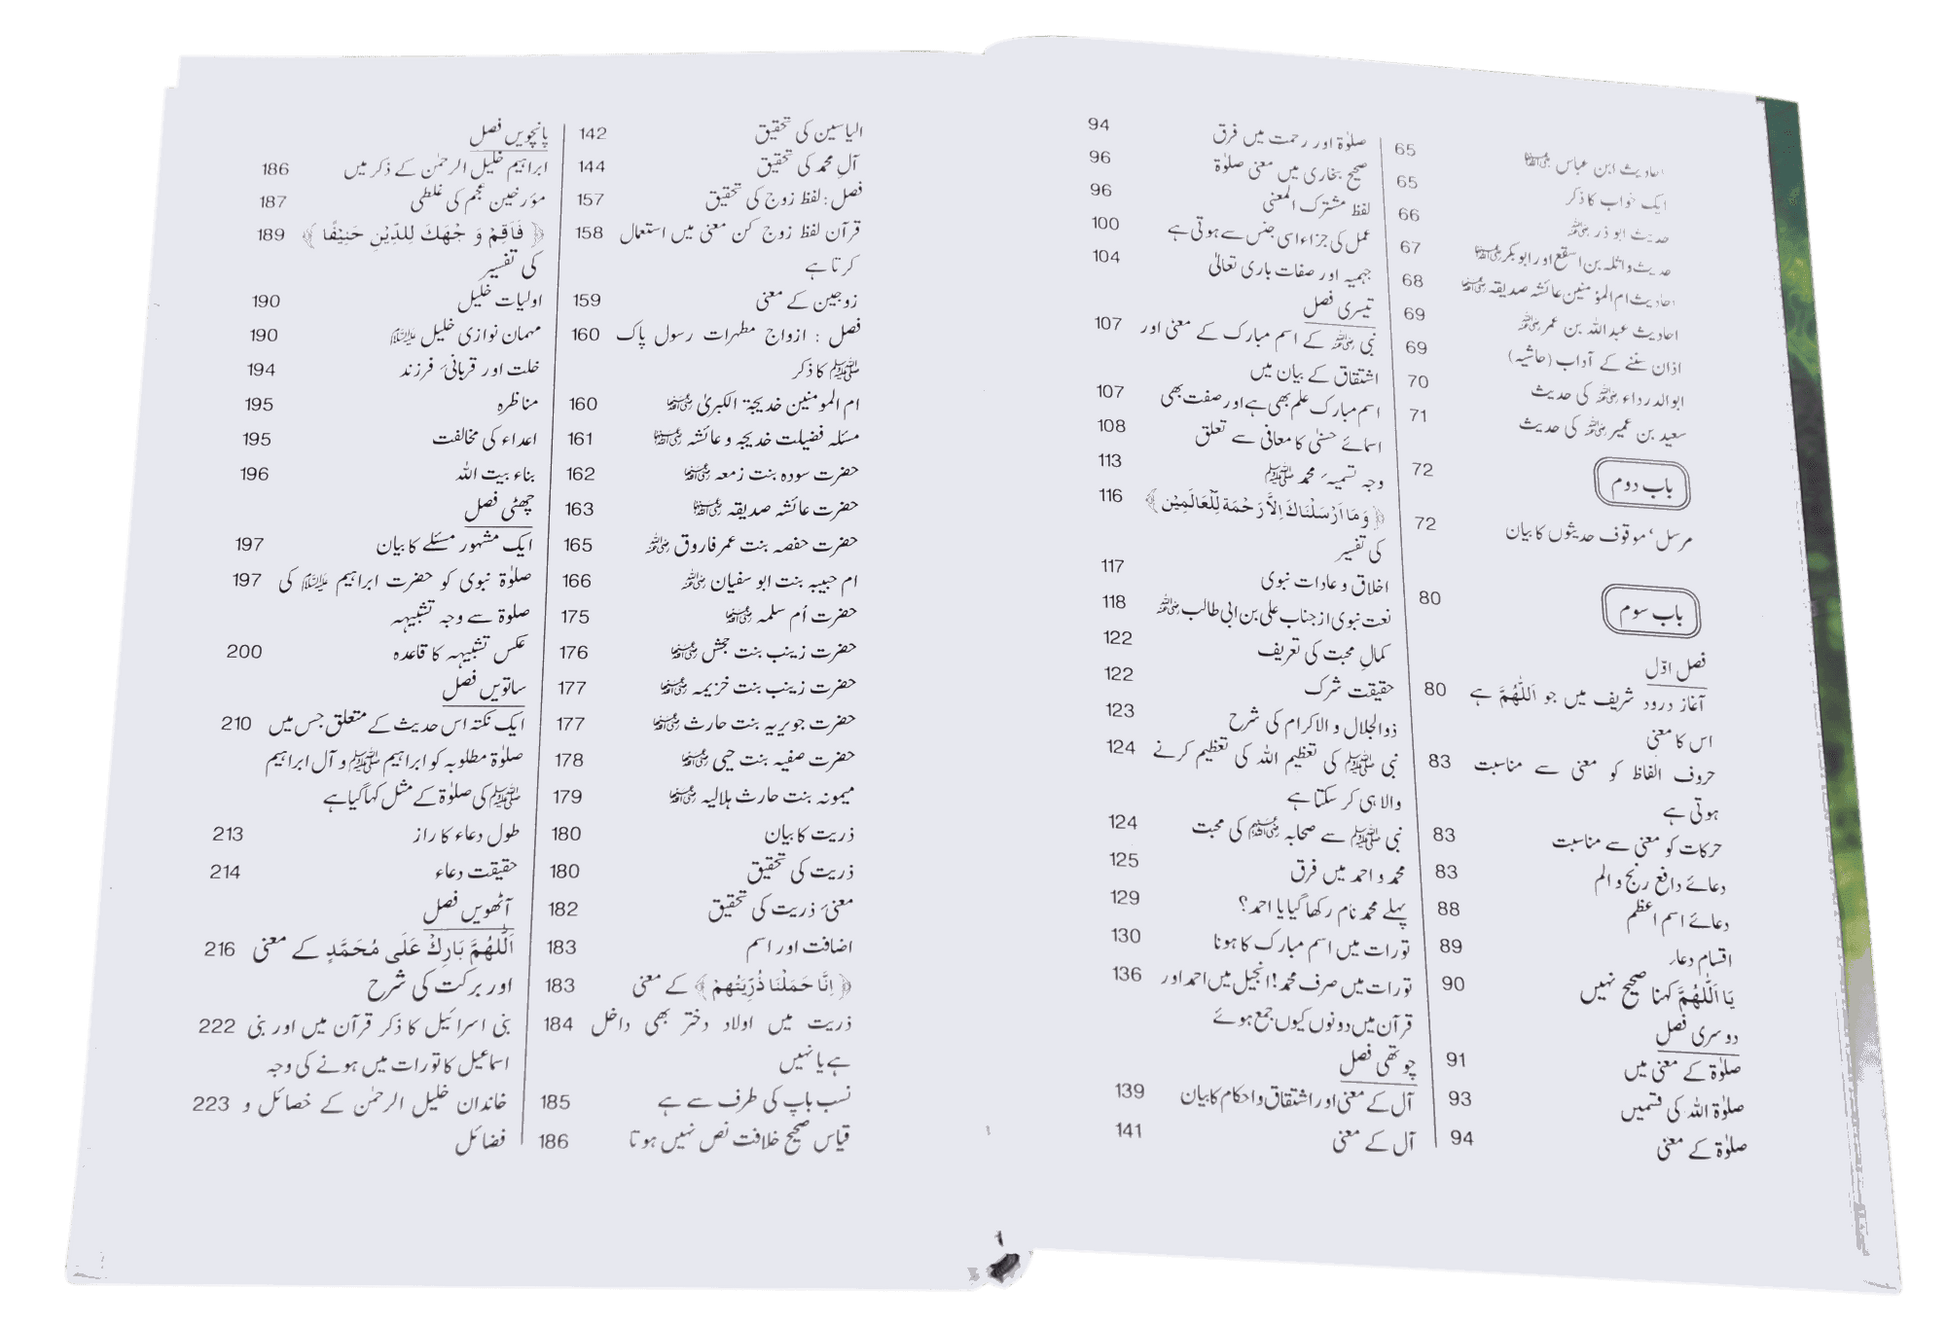 احادیث ابن عباس رضی اللہ عنہما 65
ایک خواب کا ذکر 65
حدیث ابو ذر رضی اللہ عنہ 66
حدیث واثلہ بن اسقع اور ابوبکر رضی اللہ عنہما 67
احادیث ام المؤمنین عائشہ صدیقہ رضی اللہ عنہا 68
احادیث عبداللہ بن عمر رضی اللہ عنہ 69
اذان سننے کے آداب (حاشیہ) 69
ابوالدرداء رضی اللہ عنہ کی حدیث 70
سعید بن عمیر رضی اللہ عنہ کی حدیث 71
باب دوم 72
مرسل‘ موقوف حدیثوں کا بیان 72
باب سوم 80
فصل اوّل
آغاز درود شریف میں جو اَللّٰهُمَّ ہے 80
اس کا معنی
حروف الفاظ کو معنی سے مناسبت 83
ہوتی ہے
حرکات کو معنی سے مناسبت 83
دعائے دافع رنج و الم 83
دعائے اسم اعظم 88
اقسام دعاء 89
یَا اَللّٰهُمَّ کہنا صحیح نہیں 90
دوسری فصل
صلوٰۃ کے معنی میں 91
صلوٰۃ اللہ کی قسمیں 93
صلوٰۃ کے معنی 94
صلوٰۃ اور رحمت میں فرق 94
صحیح بخاری میں معنی صلوٰۃ 96
لفظ مشترک المعنی 96
عمل کی جزاء اسی جنس سے ہوتی ہے 100
جہمیہ اور صفات باری تعالیٰ 104
تیسری فصل
نبی ﷺ کے اسم مبارک کے معنی اور 107
اشتقاق کے بیان میں
اسم مبارک علم بھی ہے اور صفت بھی 107
اسمائے حسنیٰ کا معانی سے تعلق 108
وجہ تسمیہ ٔ محمد ﷺ 113
﴿ وَمَا اَرْسَلْنَاكَ اِلاَّ رَحْمَةً لِّلْعَالَمِيْنَ ﴾ 116
کی تفسیر
اخلاق و عادات نبوی 117
نعت نبوی از جناب علی بن ابی طالب رضی اللہ عنہ 118
کمالِ محبت کی تعریف 122
حقیقت شرک 122
ذوالجلال و الاکرام کی شرح 123
نبی ﷺ کی تعظیم اللہ کی تعظیم کرنے 124
والا ہی کر سکتا ہے
نبی ﷺ سے صحابہ رضی اللہ عنہم کی محبت 124
محمد و احمد میں فرق 125
پہلے محمد نام رکھا گیا یا احمد؟ 129
تورات میں اسم مبارک کا ہونا 130
تورات میں صرف محمد! انجیل میں احمد اور 136
قرآن میں دونوں کیوں جمع ہوئے
چوتھی فصل
آل کے معنی اور اشتقاق و احکام کا بیان 139
آل کے معنی 141
الیاسین کی تحقیق 142
آلِ محمد کی تحقیق 144
فصل: لفظ زوج کی تحقیق 157
قرآن لفظ زوج کن معنی میں استعمال 158
کرتا ہے
زوجین کے معنی 159
فصل : ازواج مطہرات رسول پاک 160
ﷺ کا ذکر
ام المومنین خدیجۃ الکبریٰ رضی اللہ عنہا 160
مسئلہ فضیلت خدیجہ و عائشہ رضی اللہ عنہما 161
حضرت سودہ بنت زمعہ رضی اللہ عنہا 162
حضرت عائشہ صدیقہ رضی اللہ عنہا 163
حضرت حفصہ بنت عمر فاروق رضی اللہ عنہ 165
ام حبیبہ بنت ابو سفیان رضی اللہ عنہ 166
حضرت اُم سلمہ رضی اللہ عنہا 175
حضرت زینب بنت جحش رضی اللہ عنہا 176
حضرت زینب بنت خزیمہ رضی اللہ عنہا 177
حضرت جویریہ بنت حارث رضی اللہ عنہا 177
حضرت صفیہ بنت حیی رضی اللہ عنہا 178
میمونہ بنت حارث ہلالیہ رضی اللہ عنہا 179
ذریت کا بیان 180
ذریت کی تحقیق 180
معنیٔ ذریت کی تحقیق 182
اضافت اور اسم 183
﴿ اِنَّا حَمَلْنَا ذُرِّيَّتَهُمْ ﴾ کے معنی 183
ذریت میں اولاد دختر بھی داخل 184
ہے یا نہیں
نسب باپ کی طرف سے ہے 185
قیاس صحیح خلافت نص نہیں ہوتا 186
پانچویں فصل
ابراہیم خلیل الرحمٰن کے ذکر میں 186
مؤرخین عجم کی غلطی 187
﴿ فَاَقِمْ وَ جْهَكَ لِلدِّيْنِ حَنِيْفًا ﴾ 189
کی تفسیر
اولیات خلیل 190
مہمان نوازی خلیل علیہ السلام 190
خلت اور قربانیٔ فرزند 194
مناظرہ 195
اعداء کی مخالفت 195
بناء بیت اللہ 196
چھٹی فصل
ایک مشہور مسئلے کا بیان 197
صلوٰۃ نبوی کو حضرت ابراہیم علیہ السلام کی 197
صلوٰۃ سے وجہ تشبیہہ
عکس تشبیہہ کا قاعدہ 200
ساتویں فصل
ایک نکتہ اس حدیث کے متعلق جس میں 210
صلوٰۃ مطلوبہ کو ابراہیم ﷺ و آل ابراہیم
ﷺ کی صلوٰۃ کے مثل کہا گیا ہے
طول دعاء کا راز 213
حقیقت دعاء 214
آٹھویں فصل
اَللّٰهُمَّ بَارِكْ عَلَى مُحَمَّدٍ کے معنی 216
اور برکت کی شرح
بنی اسرائیل کا ذکر قرآن میں اور بنی 222
اسماعیل کا تورات میں ہونے کی وجہ
خاندان خلیل الرحمٰن کے خصائل و 223
فضائل